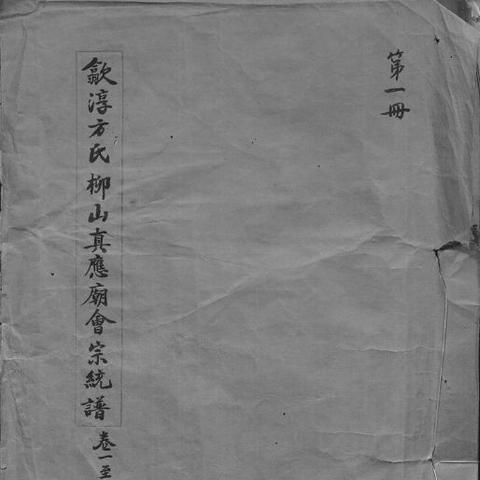 第一冊
歙淳方氏柳山真應廟會宗統譜
卷一至